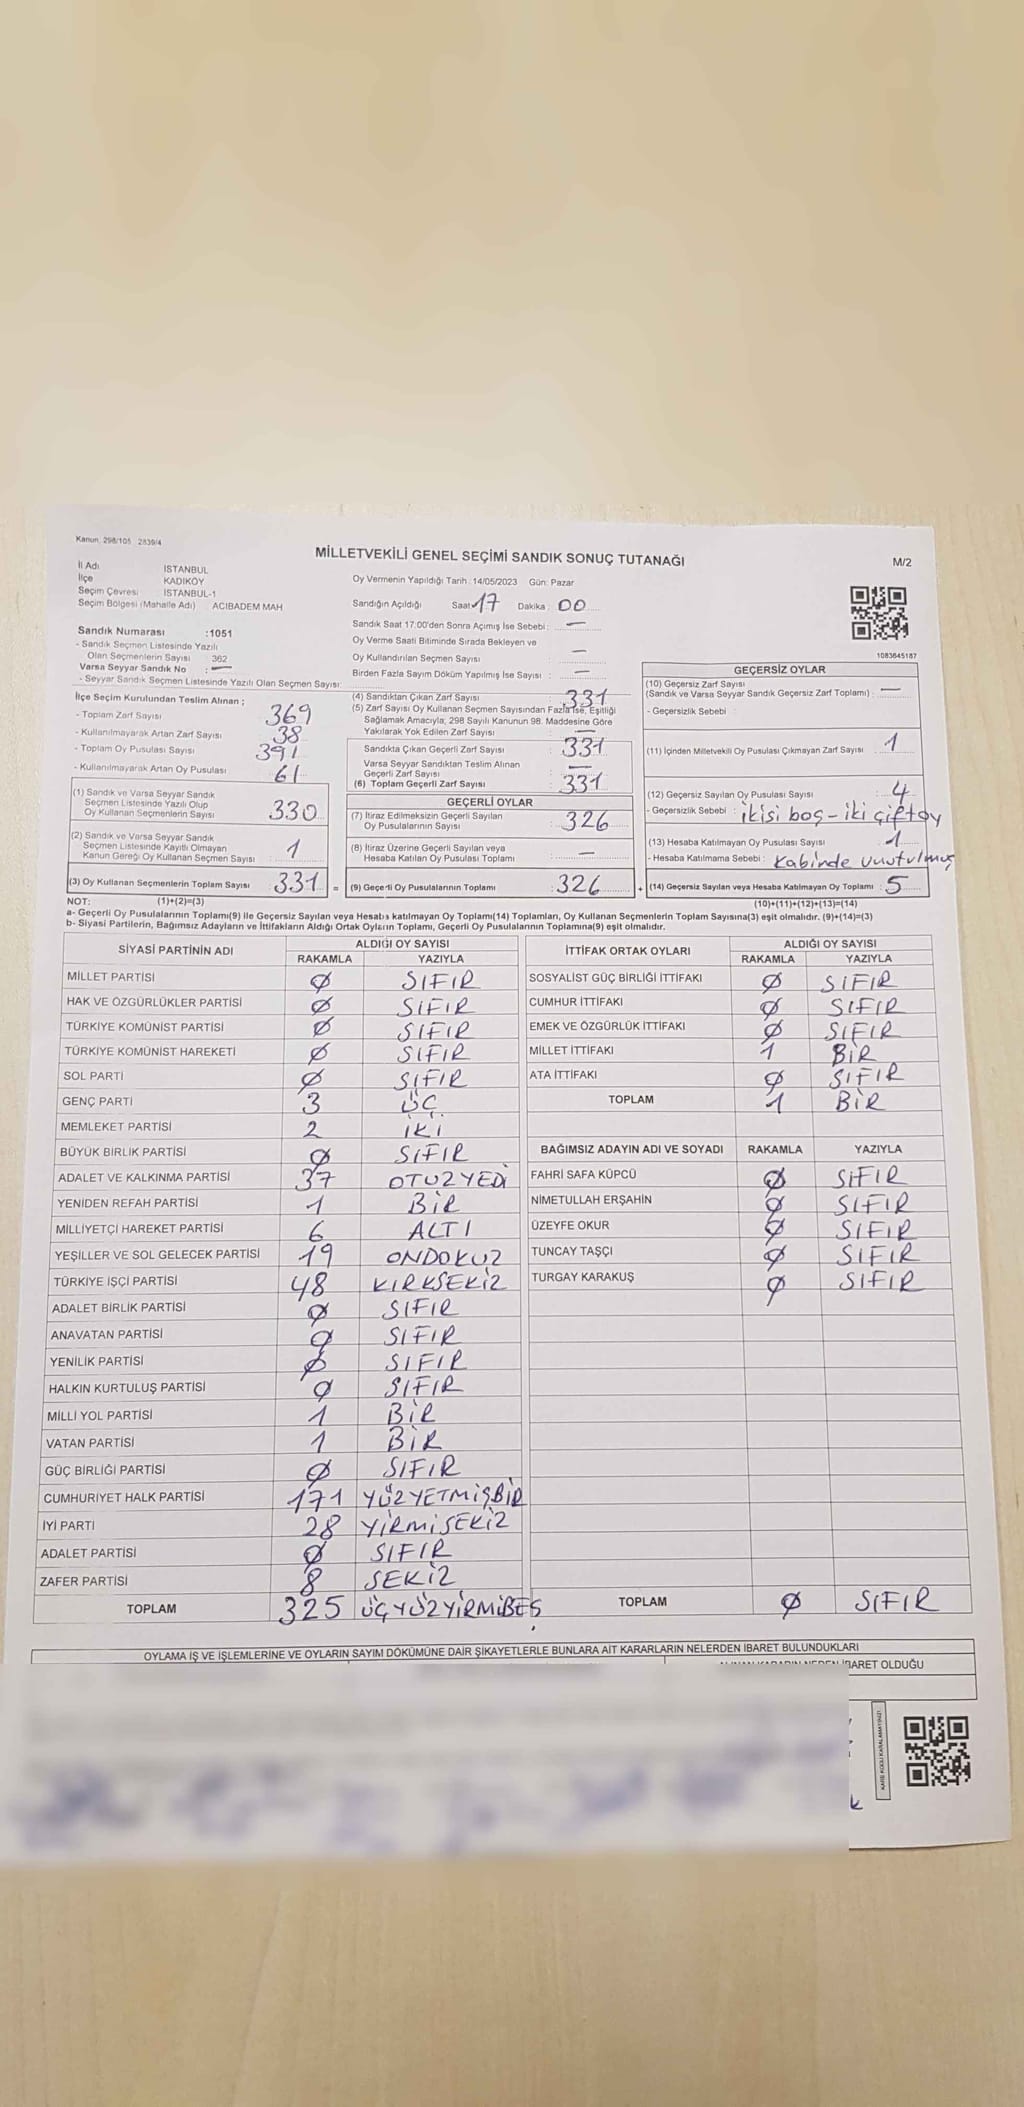 Kanun: 298/105 2839/4
MİLLETVEKİLİ GENEL SEÇİMİ SANDIK SONUÇ TUTANAĞI
M/2
İl Adı : İSTANBUL
İlçe : KADIKÖY
Seçim Çevresi : İSTANBUL-1
Seçim Bölgesi (Mahalle Adı) : ACIBADEM MAH
Oy Vermenin Yapıldığı Tarih: 14/05/2023 Gün: Pazar
Sandığın Açıldığı Saat 17 Dakika: 00
Sandık Saat 17:00'den Sonra Açımış İse Sebebi: —
Oy Verme Saati Bitiminde Sırada Bekleyen ve
Oy Kullandırılan Seçmen Sayısı : —
Birden Fazla Sayım Döküm Yapılmış İse Sayısı : —
1083645187
Sandık Numarası :1051
- Sandık Seçmen Listesinde Yazılı
Olan Seçmenlerin Sayısı : 362
Varsa Seyyar Sandık No : —
- Seyyar Sandık Seçmen Listesinde Yazılı Olan Seçmen Sayısı:
İlçe Seçim Kurulundan Teslim Alınan ;
- Toplam Zarf Sayısı : 369
- Kullanılmayarak Artan Zarf Sayısı : 38
- Toplam Oy Pusulası Sayısı : 391
- Kullanılmayarak Artan Oy Pusulası : 61
(1) Sandık ve Varsa Seyyar Sandık
Seçmen Listesinde Yazılı Olup
Oy Kullanan Seçmenlerin Sayısı : 330
(2) Sandık ve Varsa Seyyar Sandık
Seçmen Listesinde Kayıtlı Olmayan
Kanun Gereği Oy Kullanan Seçmen Sayısı : 1
(3) Oy Kullanan Seçmenlerin Toplam Sayısı : 331 =
(4) Sandıktan Çıkan Zarf Sayısı : 331
(5) Zarf Sayısı Oy Kullanan Seçmen Sayısından Fazla İse, Eşitliği
Sağlamak Amacıyla, 298 Sayılı Kanunun 98. Maddesine Göre
Yakılarak Yok Edilen Zarf Sayısı : —
Sandıkta Çıkan Geçerli Zarf Sayısı : 331
Varsa Seyyar Sandıktan Teslim Alınan
Geçerli Zarf Sayısı : —
(6) Toplam Geçerli Zarf Sayısı : 331
GEÇERLİ OYLAR
(7) İtiraz Edilmeksizin Geçerli Sayılan
Oy Pusulalarının Sayısı : 326
(8) İtiraz Üzerine Geçerli Sayılan veya
Hesaba Katılan Oy Pusulası Toplamı : —
(9) Geçerli Oy Pusulalarının Toplamı : 326 +
GEÇERSİZ OYLAR
(10) Geçersiz Zarf Sayısı
(Sandık ve Varsa Seyyar Sandık Geçersiz Zarf Toplamı) : —
- Geçersizlik Sebebi :
(11) İçinden Milletvekili Oy Pusulası Çıkmayan Zarf Sayısı : 1
(12) Geçersiz Sayılan Oy Pusulası Sayısı : 4
- Geçersizlik Sebebi : ikisi boş - iki çift oy
(13) Hesaba Katılmayan Oy Pusulası Sayısı : 1
- Hesaba Katılmama Sebebi : Kabinde unutulmuş
(14) Geçersiz Sayılan veya Hesaba Katılmayan Oy Toplamı : 5
NOT: (1)+(2)=(3)
(10)+(11)+(12)+(13)=(14)
a- Geçerli Oy Pusulalarının Toplamı(9) ile Geçersiz Sayılan veya Hesaba katılmayan Oy Toplamı(14) Toplamları, Oy Kullanan Seçmenlerin Toplam Sayısına(3) eşit olmalıdır. (9)+(14)=(3)
b- Siyasi Partilerin, Bağımsız Adayların ve İttifakların Aldığı Ortak Oyların Toplamı, Geçerli Oy Pusulalarının Toplamına(9) eşit olmalıdır.
SİYASİ PARTİNİN ADI ALDIĞI OY SAYISI
RAKAMLA YAZIYLA
MİLLET PARTİSİ 0 SIFIR
HAK VE ÖZGÜRLÜKLER PARTİSİ 0 SIFIR
TÜRKİYE KOMÜNİST PARTİSİ 0 SIFIR
TÜRKİYE KOMÜNİST HAREKETİ 0 SIFIR
SOL PARTİ 0 SIFIR
GENÇ PARTİ 3 ÜÇ
MEMLEKET PARTİSİ 2 İKİ
BÜYÜK BİRLİK PARTİSİ 0 SIFIR
ADALET VE KALKINMA PARTİSİ 37 OTUZYEDİ
YENİDEN REFAH PARTİSİ 1 BİR
MİLLİYETÇİ HAREKET PARTİSİ 6 ALTI
YEŞİLLER VE SOL GELECEK PARTİSİ 19 ONDOKUZ
TÜRKİYE İŞÇİ PARTİSİ 48 KIRKSEKİZ
ADALET BİRLİK PARTİSİ 0 SIFIR
ANAVATAN PARTİSİ 0 SIFIR
YENİLİK PARTİSİ 0 SIFIR
HALKIN KURTULUŞ PARTİSİ 0 SIFIR
MİLLİ YOL PARTİSİ 1 BİR
VATAN PARTİSİ 1 BİR
GÜÇ BİRLİĞİ PARTİSİ 0 SIFIR
CUMHURİYET HALK PARTİSİ 171 YÜZYETMİŞBİR
İYİ PARTİ 28 YİRMİSEKİZ
ADALET PARTİSİ 0 SIFIR
ZAFER PARTİSİ 8 SEKİZ
TOPLAM 325 ÜÇYÜZYİRMİBEŞ
İTTİFAK ORTAK OYLARI ALDIĞI OY SAYISI
RAKAMLA YAZIYLA
SOSYALİST GÜÇ BİRLİĞİ İTTİFAKI 0 SIFIR
CUMHUR İTTİFAKI 0 SIFIR
EMEK VE ÖZGÜRLÜK İTTİFAKI 0 SIFIR
MİLLET İTTİFAKI 1 BİR
ATA İTTİFAKI 0 SIFIR
TOPLAM 1 BİR
BAĞIMSIZ ADAYIN ADI VE SOYADI RAKAMLA YAZIYLA
FAHRİ SAFA KÜPCÜ 0 SIFIR
NİMETULLAH ERŞAHİN 0 SIFIR
ÜZEYFE OKUR 0 SIFIR
TUNCAY TAŞÇI 0 SIFIR
TURGAY KARAKUŞ 0 SIFIR
TOPLAM 0 SIFIR
OYLAMA İŞ VE İŞLEMLERİNE VE OYLARIN SAYIM DÖKÜMÜNE DAİR ŞİKAYETLERLE BUNLARA AİT KARARLARIN NELERDEN İBARET BULUNDUKLARI
İBARET OLDUĞU